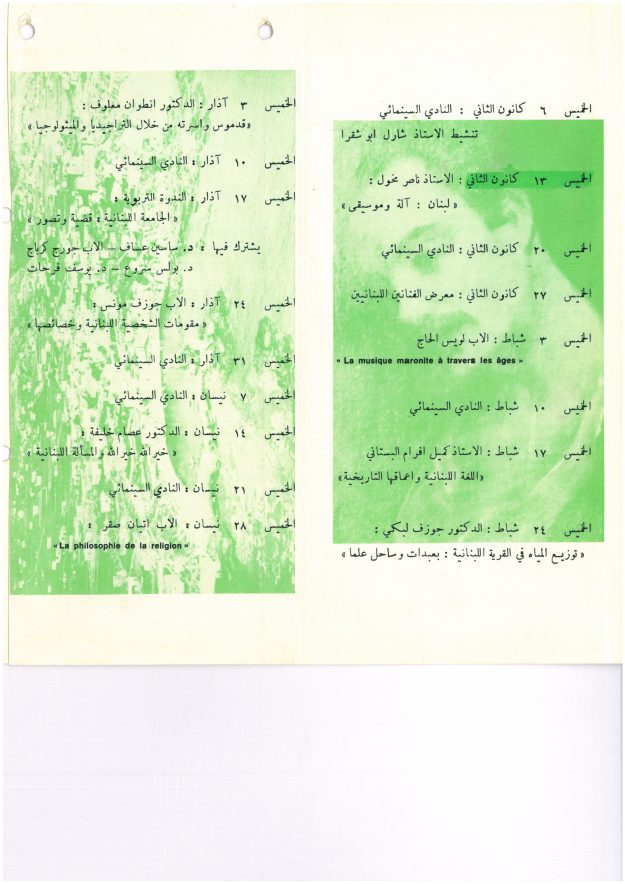 الخميس ٦ كانون الثاني : النادي السينمائي
تنشيط الاستاذ شارل ابو شقرا
الخميس ١٣ كانون الثاني : الاستاذ ناصر مخول :
« لبنان : آلة وموسيقى »
الخميس ٢٠ كانون الثاني : النادي السينمائي
الخميس ٢٧ كانون الثاني : معرض الفنانين اللبنانيين
الخميس ٣ شباط : الاب لويس الحاج
« La musique maronite à travers les âges »
الخميس ١٠ شباط : النادي السينمائي
الخميس ١٧ شباط : الاستاذ كميل افرام البستاني
«اللغة اللبنانية واعماقها التاريخية»
الخميس ٢٤ شباط : الدكتور جوزف لبكي :
« توزيع المياه في القرية اللبنانية : بعبدات وساحل علما »
الخميس ٣ آذار : الدكتور انطوان معلوف :
«قدموس واسرته من خلال التراجيديا والميثولوجيا »
الخميس ١٠ آذار : النادي السينمائي
الخميس ١٧ آذار : الندوة التربوية :
« الجامعة اللبنانية : قضية وتصور »
يشترك فيها : د. ساسين عساف – الاب جورج كرباج
د. بولس سروع – د. يوسف فرحات
الخميس ٢٤ آذار : الاب جوزف مونس :
« مقومات الشخصية اللبنانية وخصائصها »
الخميس ٣١ آذار : النادي السينمائي
الخميس ٧ نيسان : النادي السينمائي
الخميس ١٤ نيسان : الدكتور عصام خليفة :
« خيرالله خيرالله والمسألة اللبنانية »
الخميس ٢١ نيسان : النادي السينمائي
الخميس ٢٨ نيسان : الاب اتيان صقر :
« La philosophie de la religion »